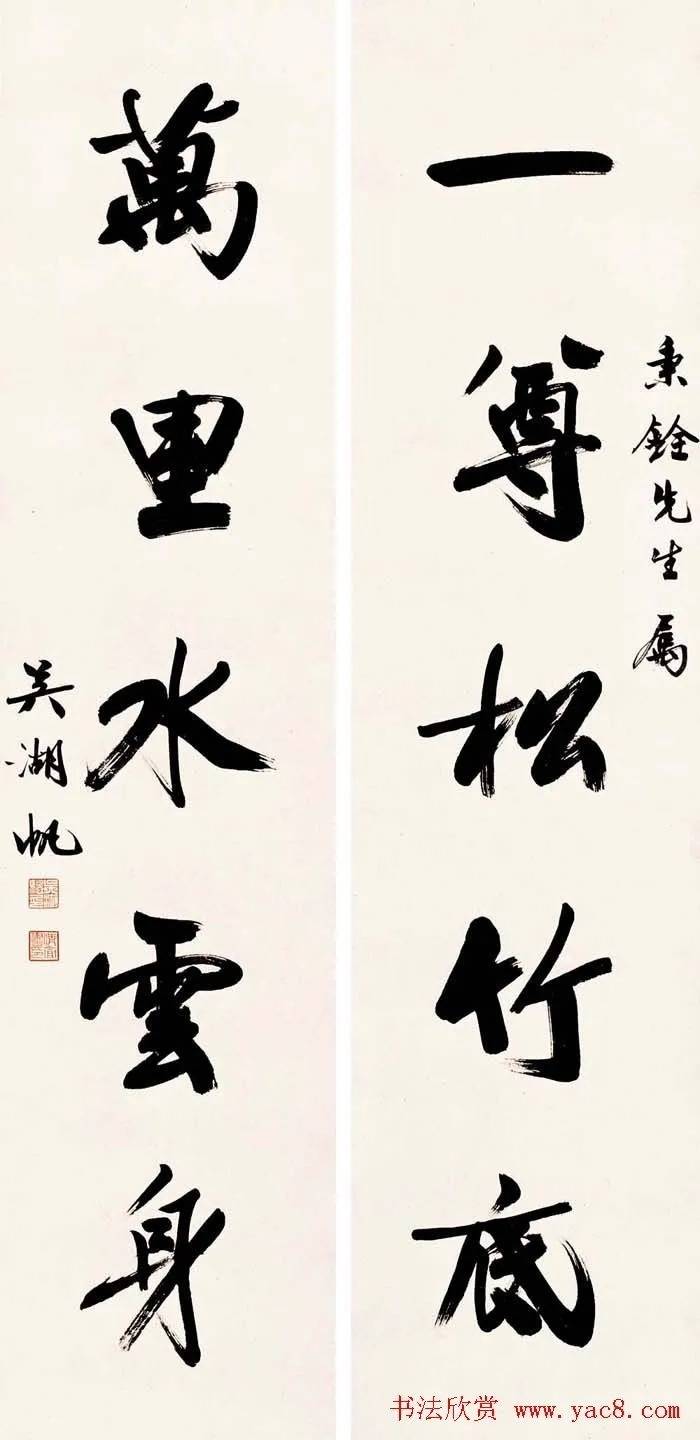 秉銓先生属
一尊松竹底
萬里水雲身
吳湖帆
书法欣赏 www.yac8.com